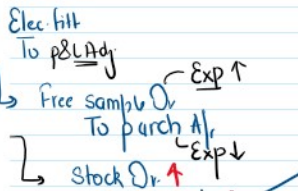 Elec. fitt
To P&L Adj
Exp ↑
Free sample Dr
To purch A/c
Exp ↓
Stock Dr. ↑